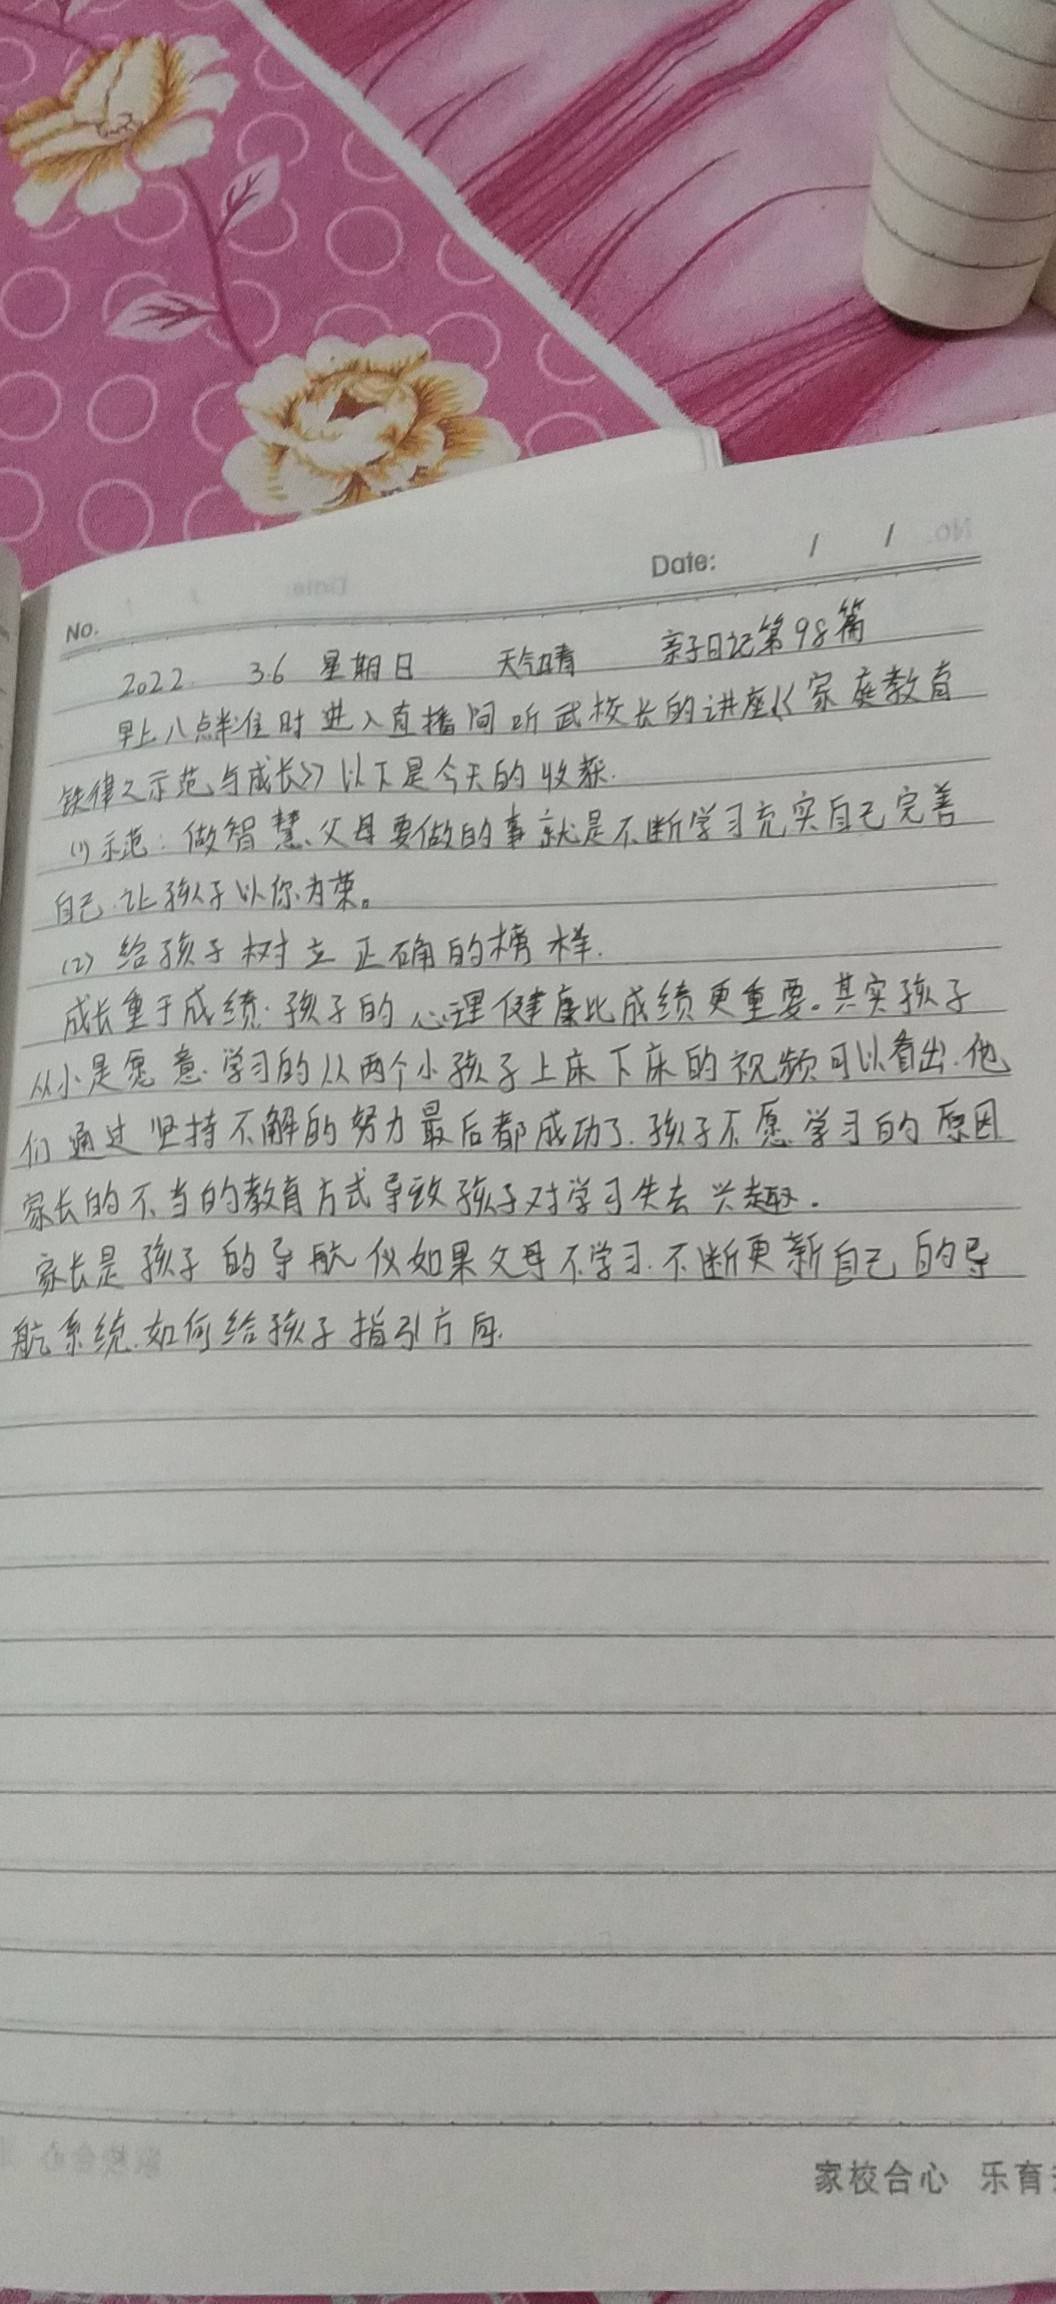 Date: / /
No.
2022. 3.6 星期日 天气晴 亲子日记第98篇
早上八点半准时进入直播间听武校长的讲座《家庭教育
铁律之示范与成长》以下是今天的收获.
(1)示范:做智慧父母要做的事就是不断学习充实自己完善
自己.让孩子以你为荣。
(2)给孩子树立正确的榜样.
成长重于成绩.孩子的心理健康比成绩更重要。其实孩子
从小是愿意.学习的从两个小孩子上床下床的视频可以看出.他
们通过坚持不解的努力最后都成功了.孩子不愿学习的原因
家长的不当的教育方式导致孩子对学习失去兴趣.
家长是孩子的导航仪如果父母不学习.不断更新自己的导
航系统.如何给孩子指引方向.
家校合心 乐育